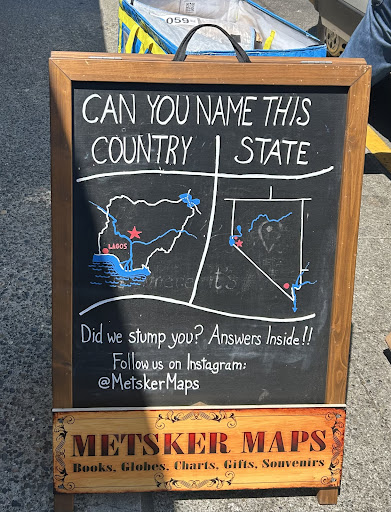 059
CAN YOU NAME THIS
COUNTRY STATE
LAGOS
Did we stump you? Answers Inside!!
Follow us on Instagram:
@MetskerMaps
METSKER MAPS
Books, Globes, Charts, Gifts, Souvenirs